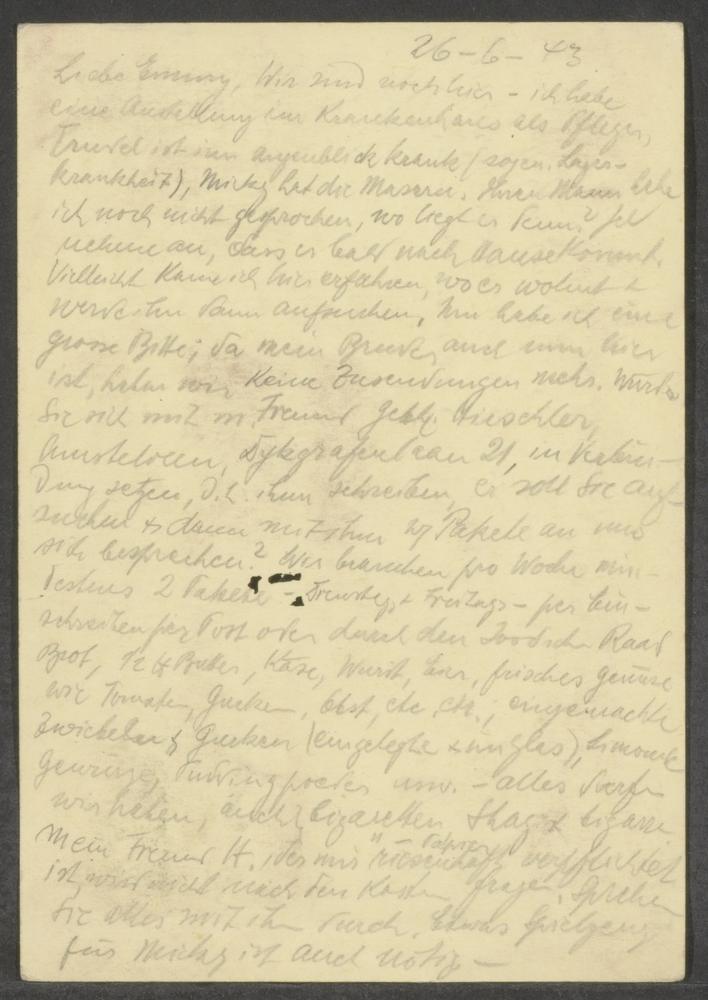 26-6-43
Liebe Emmy, Wir sind noch hier - ich habe
eine Anstellung im Krankenhaus als Pfleger,
Trudel ist im Augenblick krank (sogen. Lager-
krankheit), Micky hat die Masern. Ihren Mann habe
ich noch nicht gesprochen, wo liegt er denn? Ich
nehme an, dass er bald nach Hause kommt.
Vielleicht kann ich hier erfahren, wo er wohnt +
werde ihn dann aufsuchen. Nun habe ich eine
grosse Bitte; da mein Bruder auch nun hier
ist, haben wir keine Zusendungen mehr. Würden
Sie sich mit m. Freund Gebh.
Amstelveen, Dykgrafenlaan 21, in Verbin-
dung setzen, d.h. ihm schreiben, er soll Sie auf-
suchen + dann mit ihm Pakete an uns
sich besprechen? Wir brauchen pro Woche min-
destens 2 Pakete - Dienstags + Freitags - per Ein-
schreiben per Post oder durch den Joodschen Raad
Brot, 1/2 Butter, Käse, Wurst, Eier, frisches Gemüse
wie Tomaten, Gurken, Obst, etc. etc.; eingemachte
Zwiebeln & Gurken (eingelegte + im Glas), Limonade
Gewürze, Puddingpoeder usw. - alles dürfen
wir haben, auch Cigaretten Shag + Cigarren
Mein Freund H., der mir riesenhaft verpflichtet
ist, wird nicht nach den Kosten fragen, sprechen
Sie alles mit ihm durch. Etwas Spielzeug
für Micky ist auch nötig -